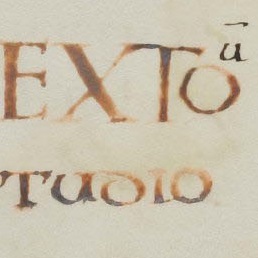 EXTOū
TUDIO